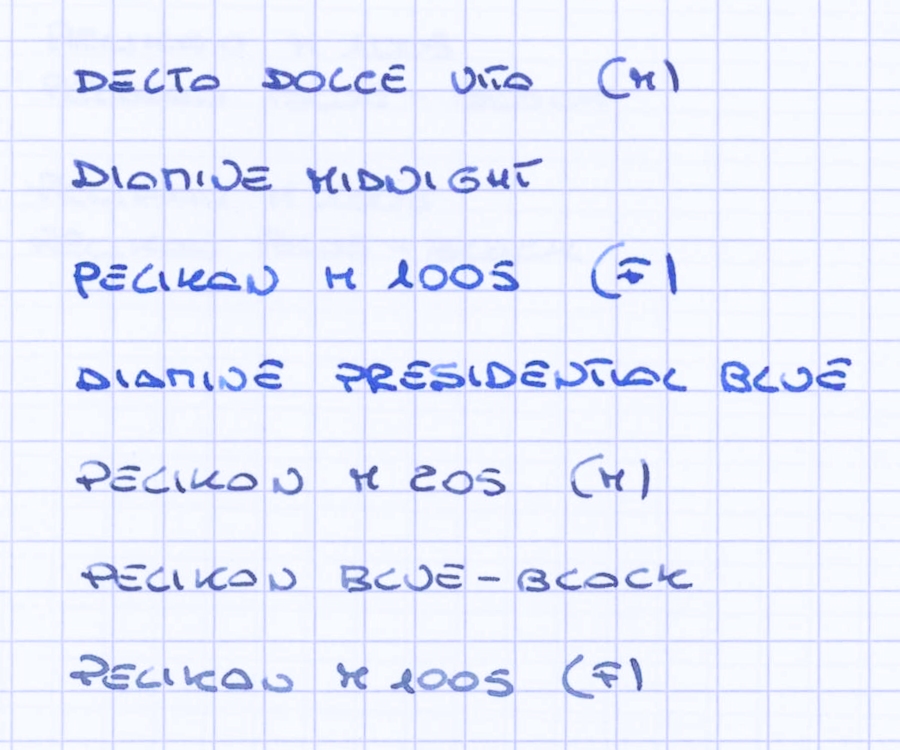 DELTA DOLCE VITA (M)
DIAMINE MIDNIGHT
PELIKAN M 1005 (F)
DIAMINE PRESIDENTIAL BLUE
PELIKAN M 205 (M)
PELIKAN BLUE-BLACK
PELIKAN M 1005 (F)